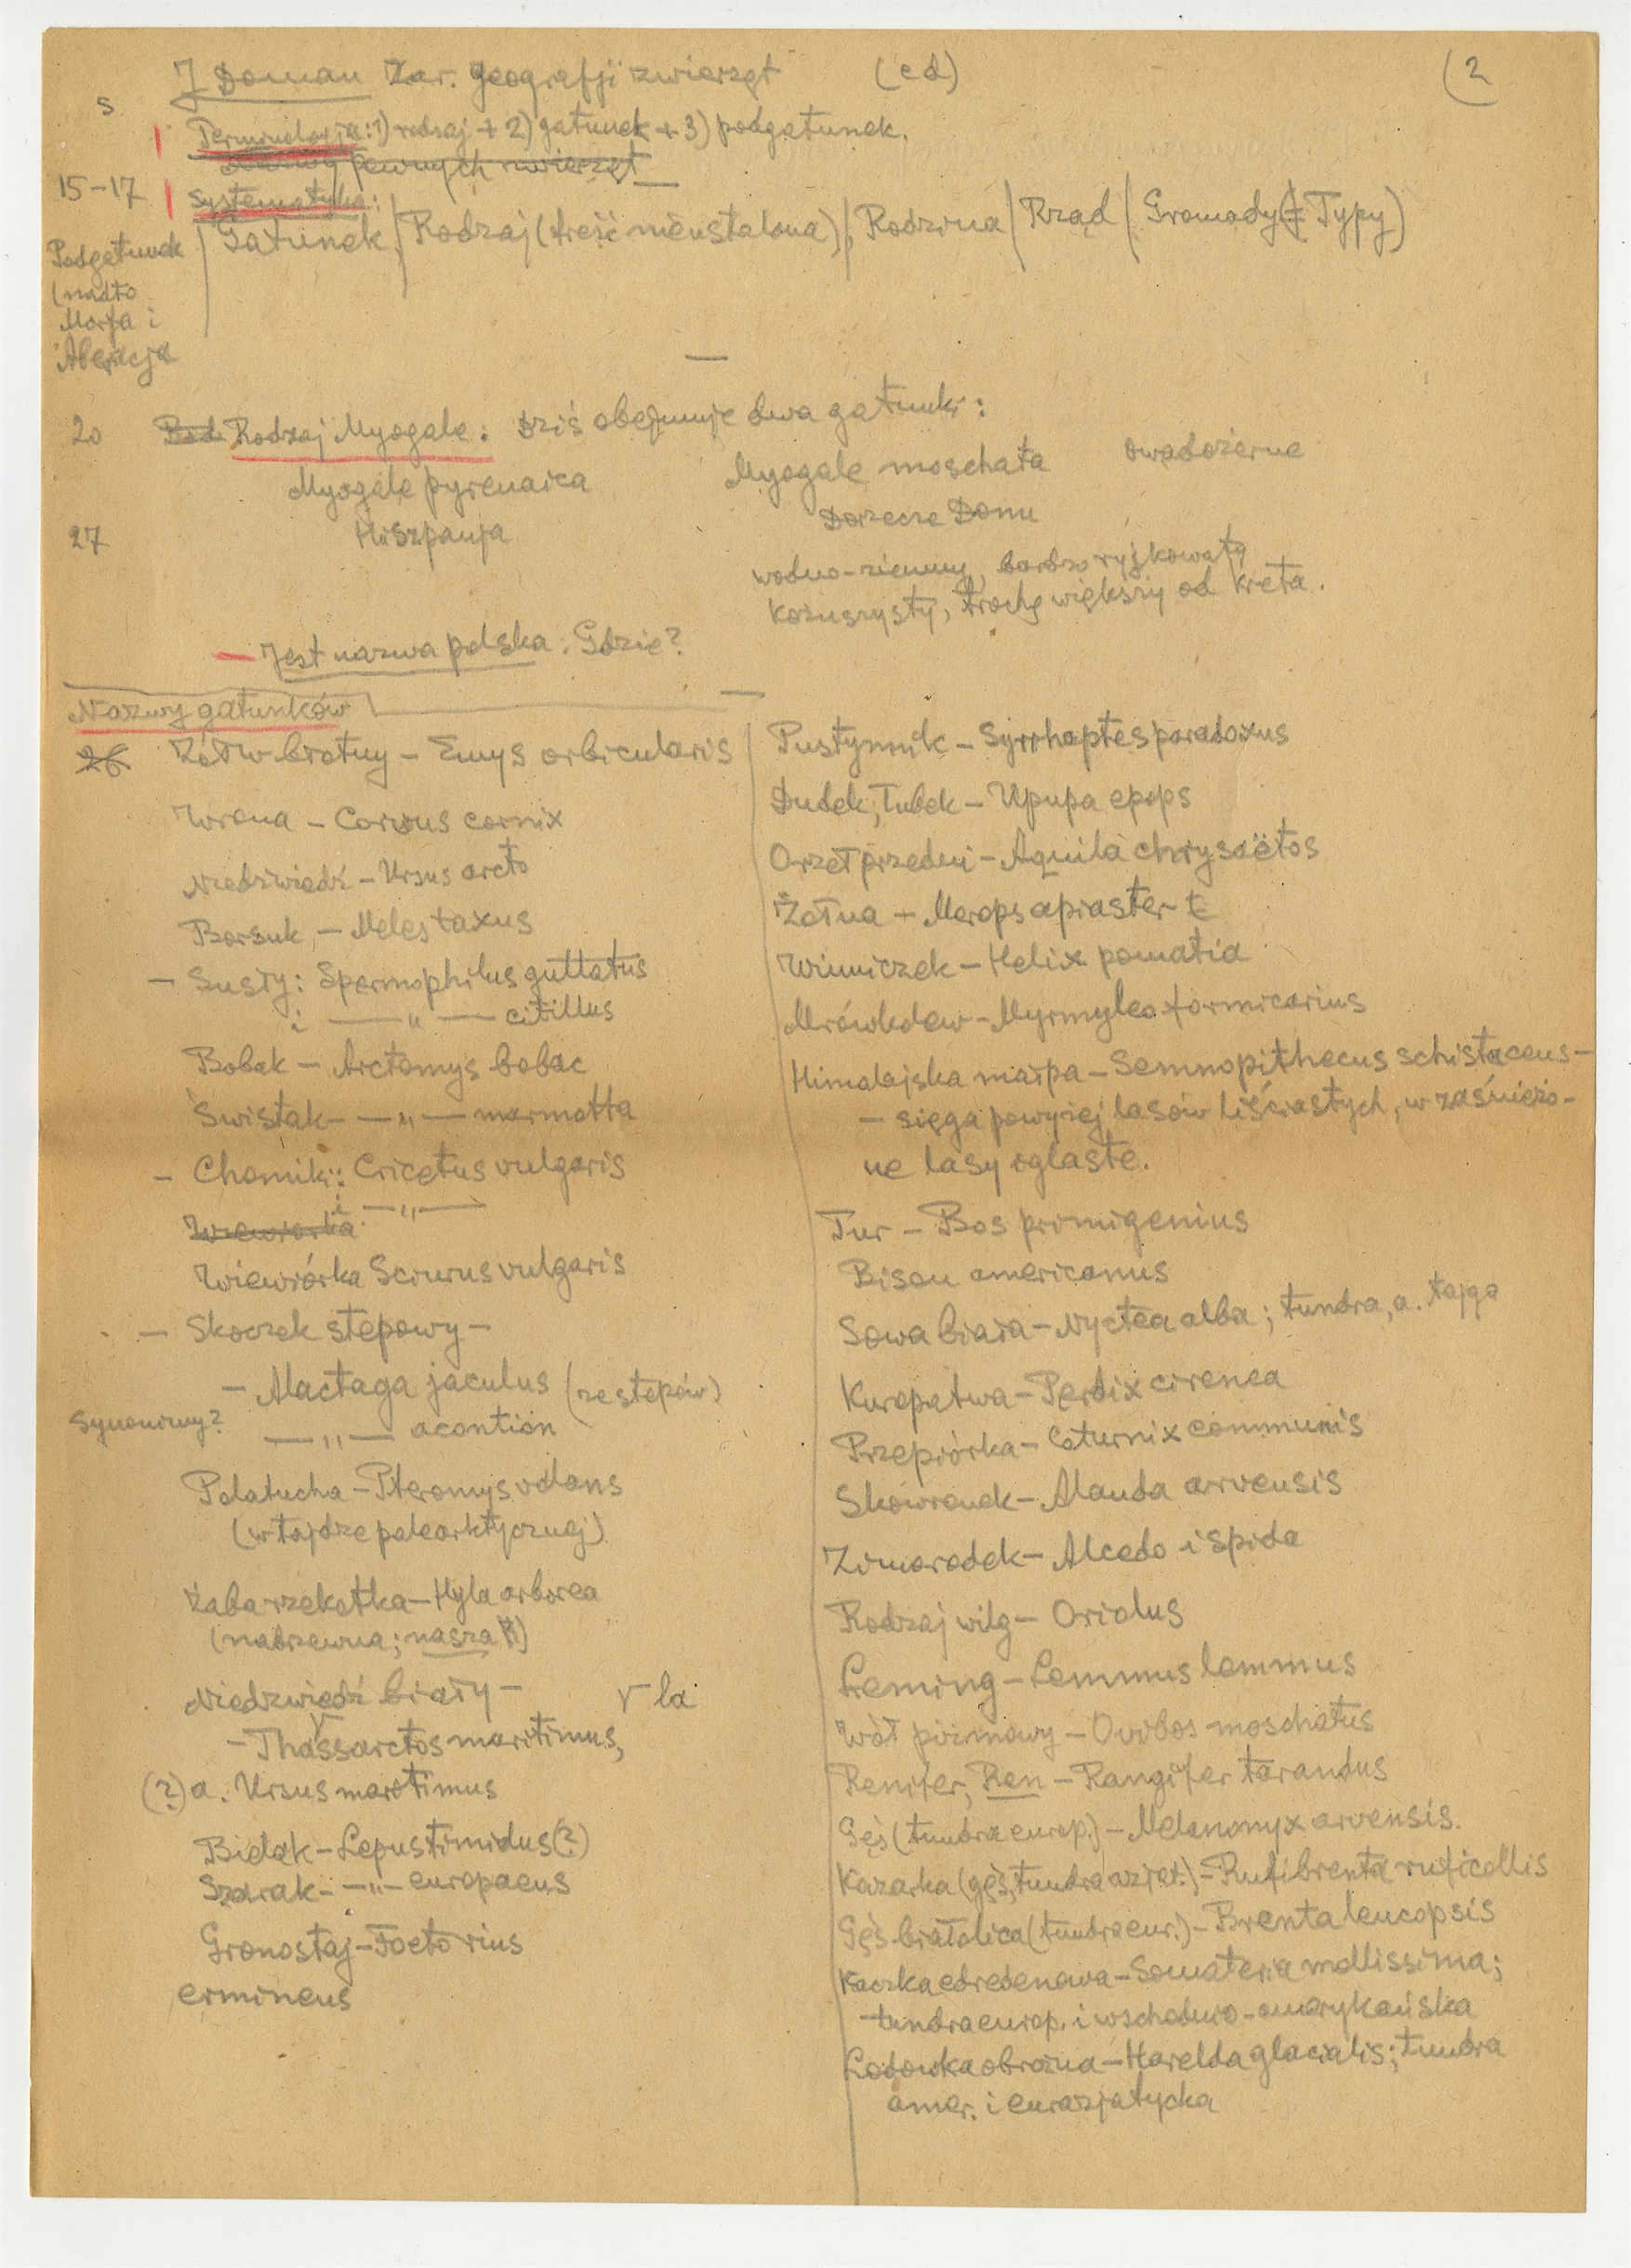 J Doman Zar. geografji zwierząt (cd) (2
s
Terminologja: 1) rodzaj + 2) gatunek + 3) podgatunek.
pewnych zwierząt
15-17
Systematyka:
Podgatunek | Gatunek | Rodzaj (treść nieustalona) | Rodzina | Rząd | Gromady (‡ Typy)
(nadto
Morfa i
Aberacja
20 Rod. Rodzaj Myogale: Dziś obejmuje dwa gatunki:
Myogale pyrenaica
Myogale moschata owadożerne
27 Hiszpanja
Dorzecze Donu
wodno-ziemny, bardzo ryjkowaty
kożuszysty, trochę większy od kreta.
— Jest nazwa polska: Gdzie?
Nazwy gatunków
26 Żółw błotny - Emys orbicularis
Wrona - Corvus cornix
Niedźwiedź - Ursus arcto
Borsuk, - Meles taxus
- Susły: Spermophilus guttatus
i —"— citillus
Bobak - Arctomys bobac
Świstak - —"— marmotta
- Chomik:: Cricetus vulgaris
i —"—
Wiewiórka Sciurus vulgaris
- Skoczek stepowy -
- Alactaga jaculus (ze stepów)
Synonimy? —"— acontion
Polatucha - Pteromys volans
(w tajdze palearktycznej)
Żaba rzekotka - Hyla arborea
(nadrzewna; nasza)
Niedźwiedź biały - √ la
- Thassarctos maritimus,
(?) a. Ursus maritimus
Bielak - Lepus timidus (?)
Szarak - —"— europaeus
Gronostaj - Foetorius
ermineus
Pustynnik - Syrrhaptes paradoxus
Dudek, Tudek - Upupa epops
Orzeł przedni - Aquila chrysaëtos
Żołna - Merops apiaster t
Winniczek - Helix pomatia
Mrówkolew - Myrmyleo formicarius
Himalajska małpa - Semnopithecus schistaceus -
- sięga powyżej lasów liściastych, w zaśnieżo-
ne lasy oglaste.
Tur - Bos primigenius
Bison americanus
Sowa biała - Nyctea alba; tundra, a. tajga
Kuropatwa - Perdix cirenea
Przepiórka - Coturnix communis
Skowronek - Alauda arvensis
Zimorodek - Alcedo ispida
Rodzaj wilg - Oriolus
Leming - Lemmus lemmus
Wół piżmowy - Ovibos moschatus
Renifer, Ren - Rangifer tarandus
Gęś (tundra europ.) - Melanonyx arvensis.
Kazarka (gęś, tundra azjat.) - Rufibrenta ruficollis
Gęś białolica (tundra eur.) - Brenta leucopsis
Kaczka edredonowa - Somateria mollissima;
tundra europ. i wschodnio-amerykańska
Lodówka obrożna - Harelda glacialis; tundra
amer. i eurazjatycka